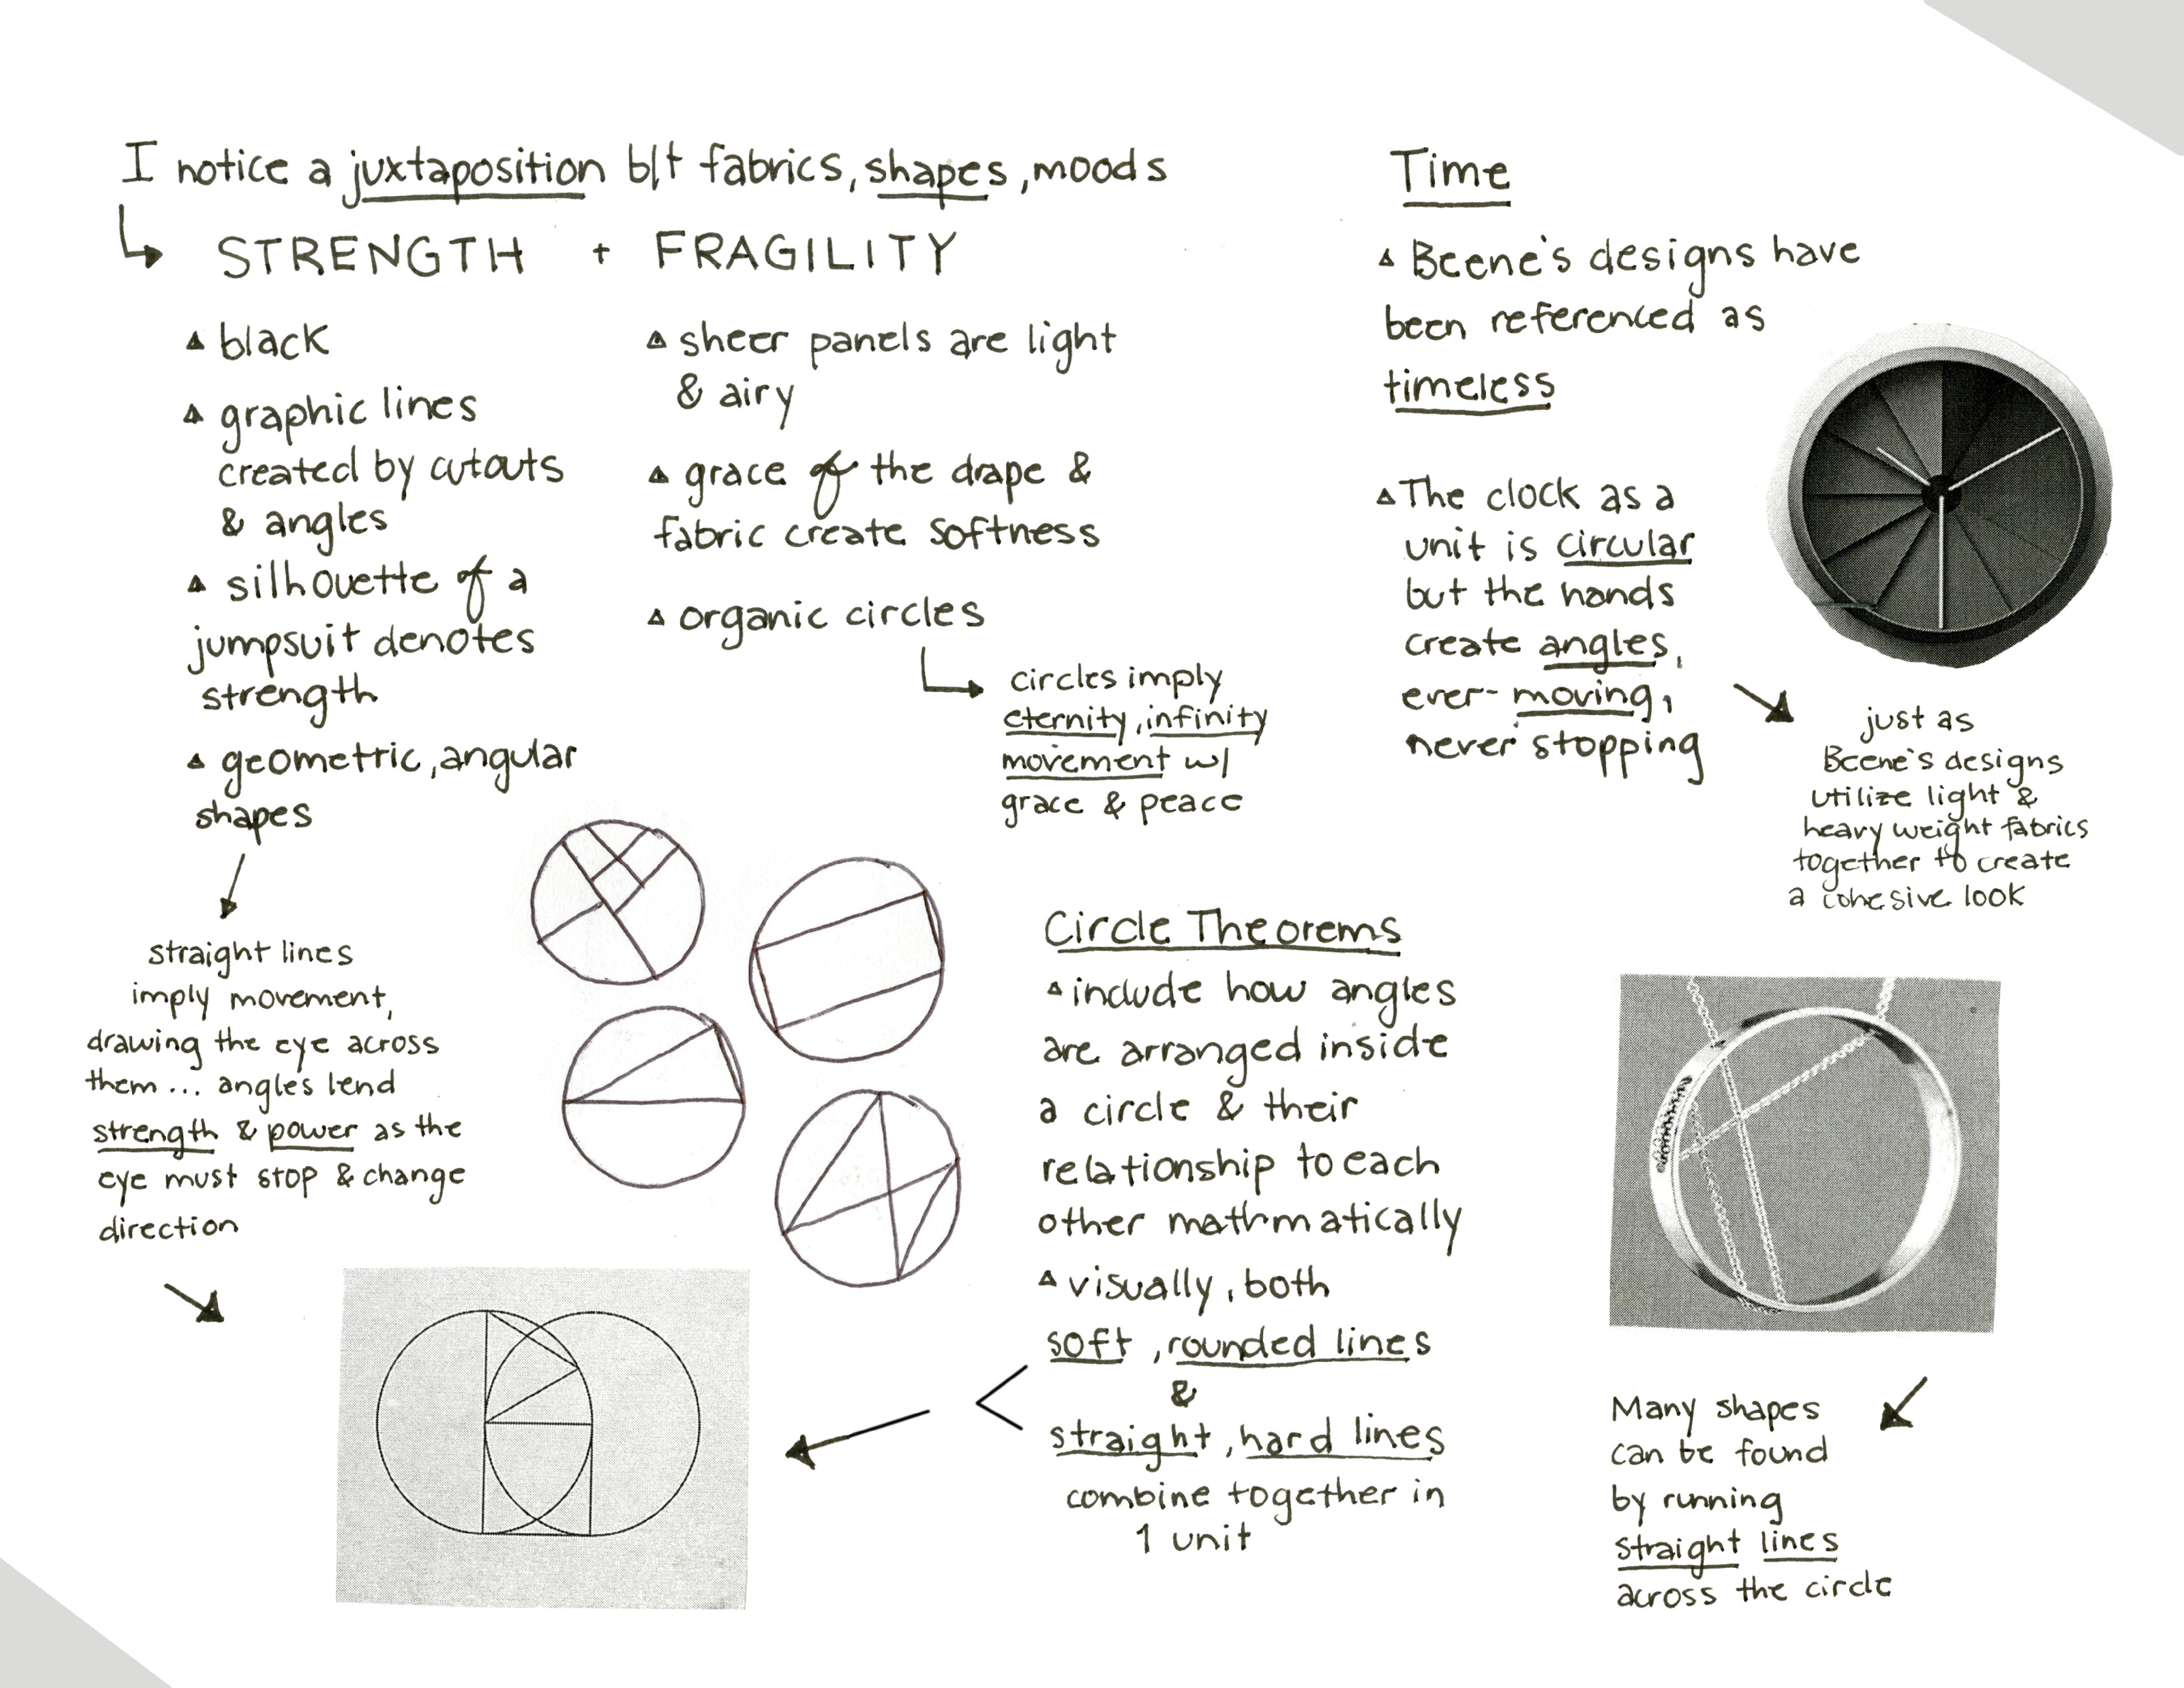 I notice a juxtaposition b/t fabrics, shapes, moods
STRENGTH + FRAGILITY
black
graphic lines
created by cutouts
& angles
silhouette of a
jumpsuit denotes
strength
geometric, angular
shapes
straight lines
imply movement,
drawing the eye across
them... angles lend
strength & power as the
eye must stop & change
direction
sheer panels are light
& airy
grace of the drape &
fabric create softness
organic circles
circles imply
eternity, infinity
movement w/
grace & peace
Time
Beene's designs have
been referenced as
timeless
The clock as a
unit is circular
but the hands
create angles,
ever-moving,
never stopping
just as
Beene's designs
utilize light &
heavy weight fabrics
together to create
a cohesive look
Circle Theorems
include how angles
are arranged inside
a circle & their
relationship to each
other mathmatically
visually, both
soft, rounded lines
&
straight, hard lines
combine together in
1 unit
Many shapes
can be found
by running
straight lines
across the circle